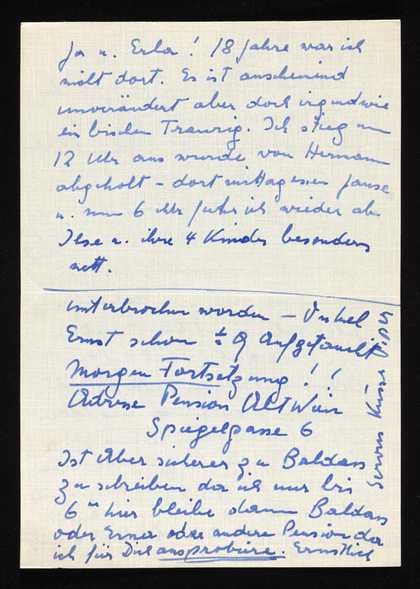 Ja u. Erla! 18 Jahre war ich
nicht dort. Es ist anscheinend
unverändert aber doch irgendwie
ein bischen Traurig. Ich stieg um
12 Uhr aus wurde von Hermann
abgeholt – dort mittagessen Jause
u. um 6 Uhr fuhr ich wieder ab
Ilse u. ihre 4 Kinder besonders
nett.
unterbrochen worden – Onkel
Ernst schon ½ 9 aufgetaucht
Morgen Fortsetzung!!
Adresse Pension Alt Wien
Spiegelgasse 6
Ist Aber sicherer zu Baldass
zu schreiben da ich nur bis
6ten hier bleibe dann Baldass
oder Erna oder andere Pension da
ich für Dich ausprobiere. Ernstlich
Servus Küsse